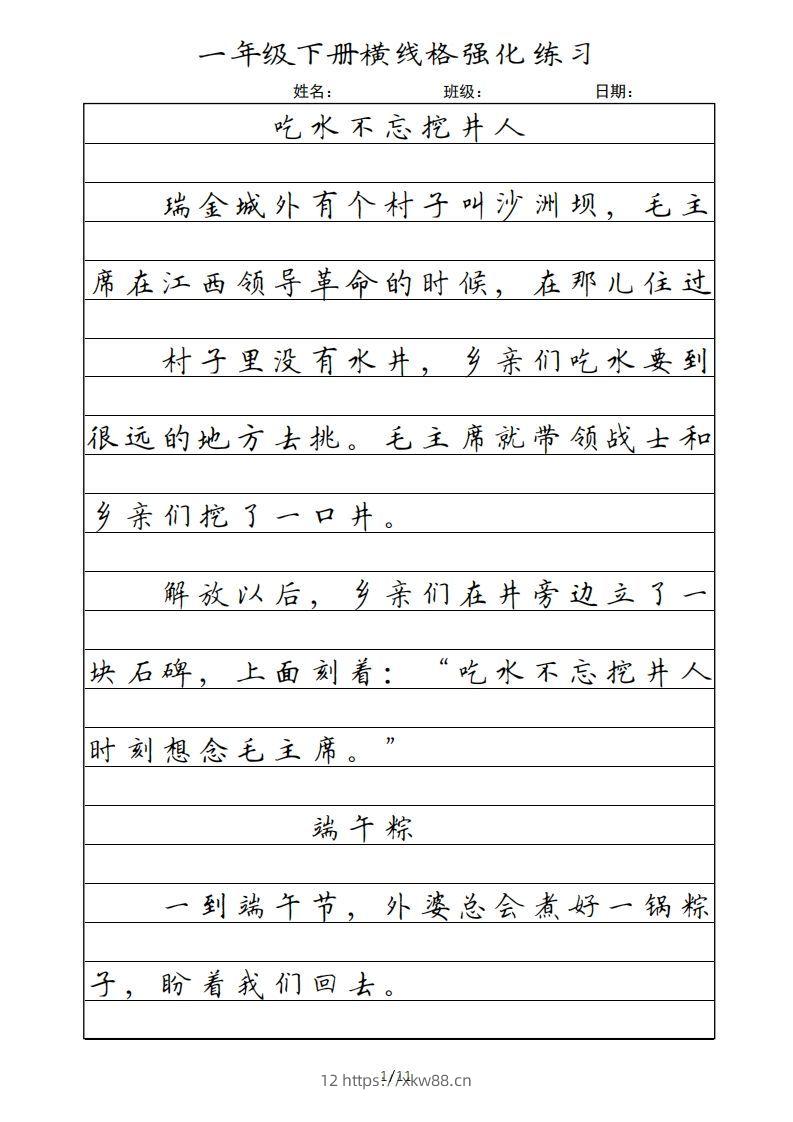 一年级下册横线格强化练习
姓名： 班级： 日期：
吃水不忘挖井人
瑞金城外有个村子叫沙洲坝，毛主
席在江西领导革命的时候，在那儿住过
村子里没有水井，乡亲们吃水要到
很远的地方去挑。毛主席就带领战士和
乡亲们挖了一口井。
解放以后，乡亲们在井旁边立了一
块石碑，上面刻着：“吃水不忘挖井人
时刻想念毛主席。”
端午粽
一到端午节，外婆总会煮好一锅粽
子，盼着我们回去。
1/11
12 https://xkw88.cn